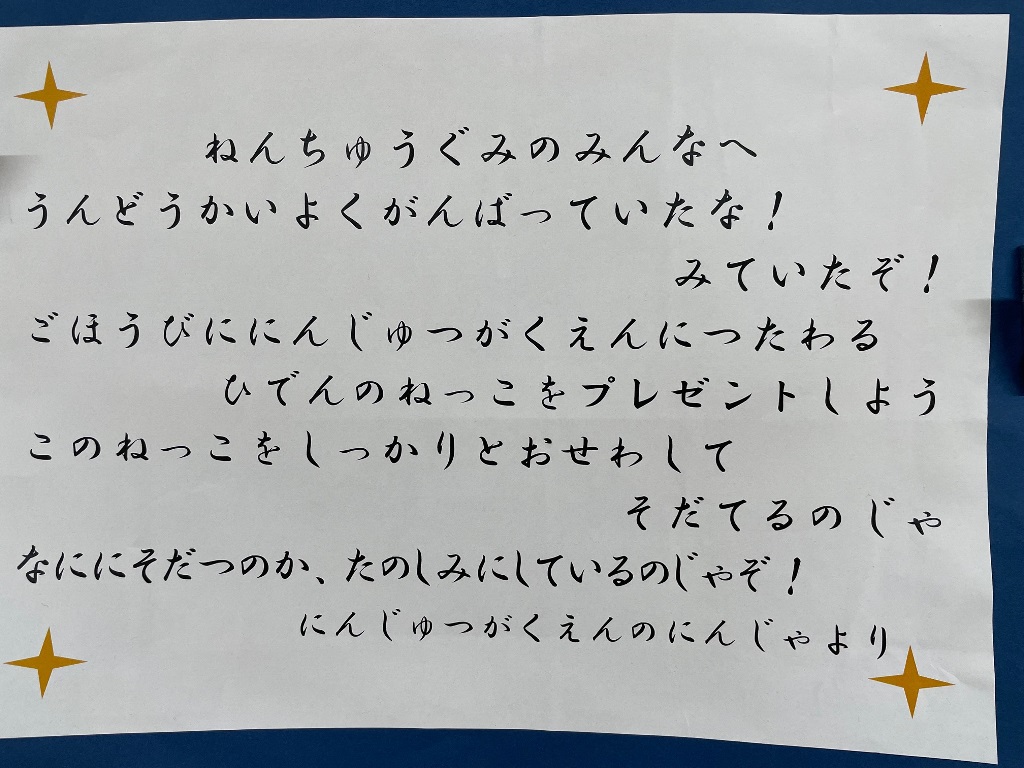 ねんちゅうぐみのみんなへ
うんどうかいよくがんばっていたな！
みていたぞ！
ごほうびににんじゅつがくえんにつたわる
ひでんのねっこをプレゼントしよう
このねっこをしっかりとおせわして
そだてるのじゃ
なににそだつのか、たのしみにしているのじゃぞ！
にんじゅつがくえんのにんじゃより